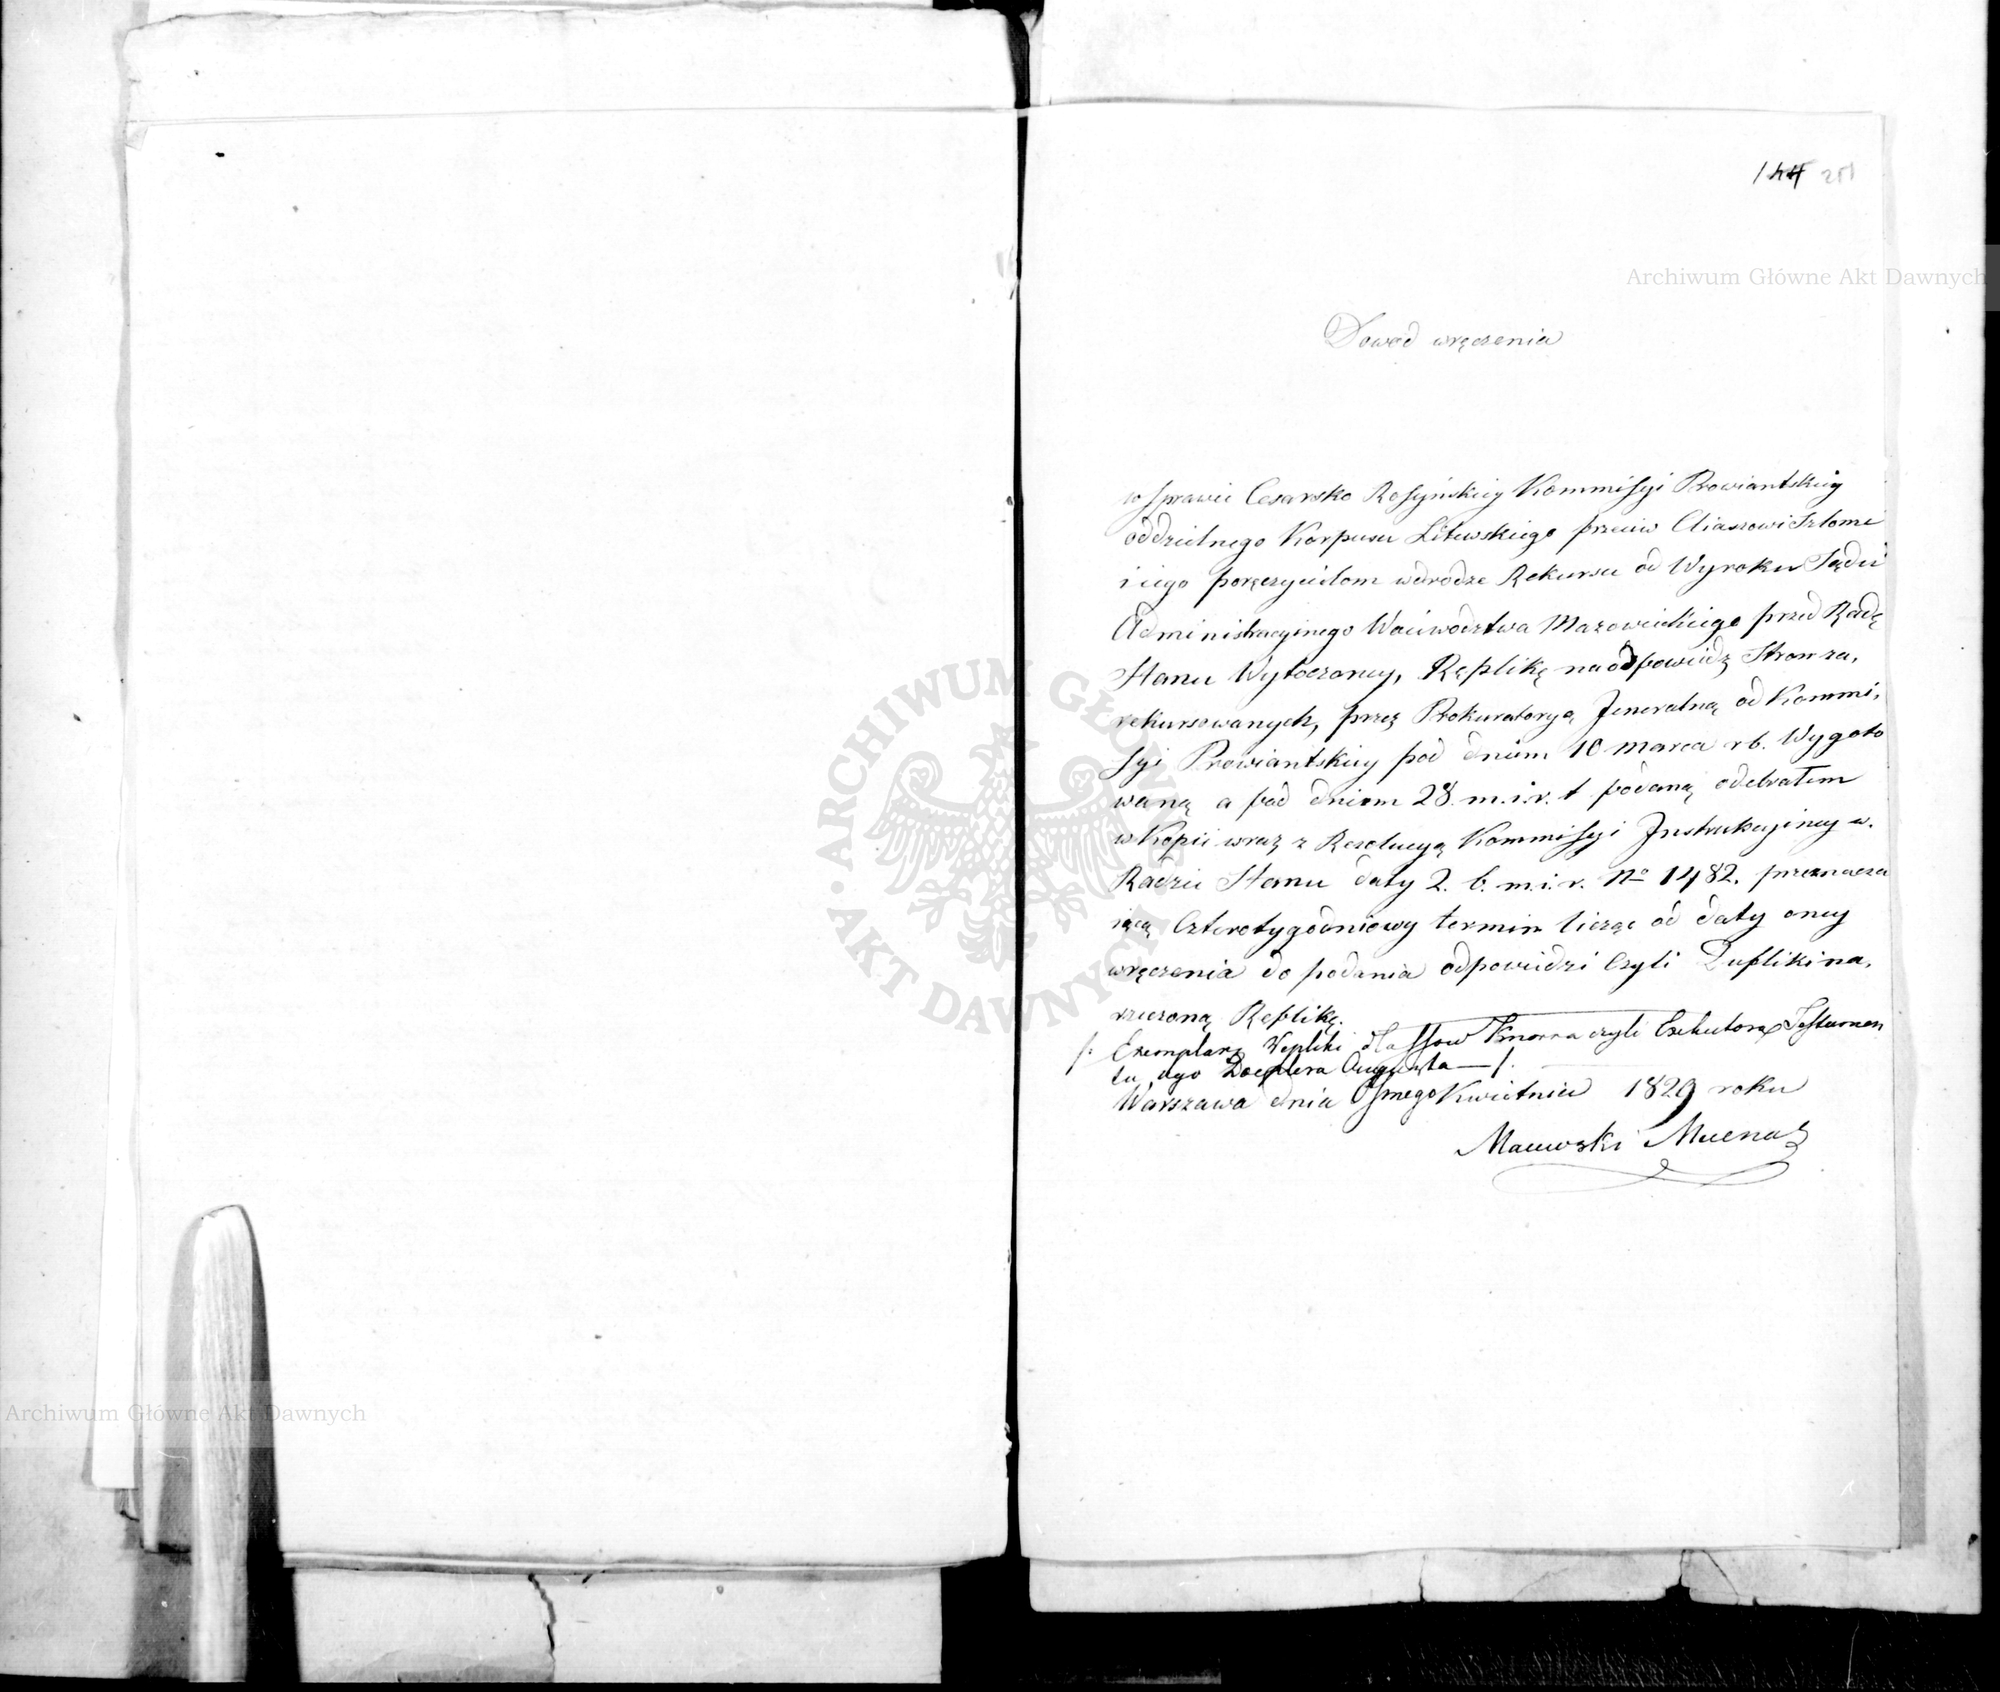 144 251
Archiwum Główne Akt Dawnych
Dowod wręczenia
w sprawie Cesarsko Rossyiskiey Kommissyi Prowiantskiey
oddzielnego Korpusu Litewskiego przeciw Eliaszowi Szlomie
i iego poręczycielom w drodze Rekursu od Wyroku Sądu
Administracyinego Woiewodztwa Mazowieckiego przed Radę
Stanu Wytoczoney, Replikę na odpowiedz Stron za,
rekursowanych, przez Prokuratoryą Jeneralną od Kommi,
ssyi Prowiantskiey pod dniem 10 marca r b. Wygoto
waną a pod dniem 28 m. i r. t podaną odebrałem
w Kopii wraz z Rezolucyą Kommissyi Instrukcyiney w.
Radzie Stanu daty 2. b. m. i. r. No 1482. przeznacza
iącą Czterotygodniowy termin licząc od daty oney
wręczenia do podania odpowiedzi czyli Dupliki na,
rzeczoną Replikę.
/: Exemplarz Repliki dla SSow Knorra czyli Exekutora Testamen
tu, ego Doeplera Augusta —/.
Warszawa dnia Osmego Kwietnia 1829 roku
Maiewski Mecenas
ARCHIWUM GŁÓWNE AKT DAWNYCH
Archiwum Główne Akt Dawnych